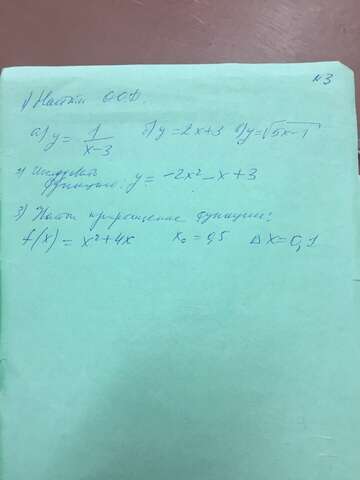 №3
1) Найти О.О.Ф.
а) y = 1/(x-3) б) y = 2x+3 в) y = √(5x-1)
2) Исследовать
функцию: y = -2x² - x + 3
3) Найти приращение функции:
f(x) = x² + 4x x₀ = 0,5 Δx = 0,1